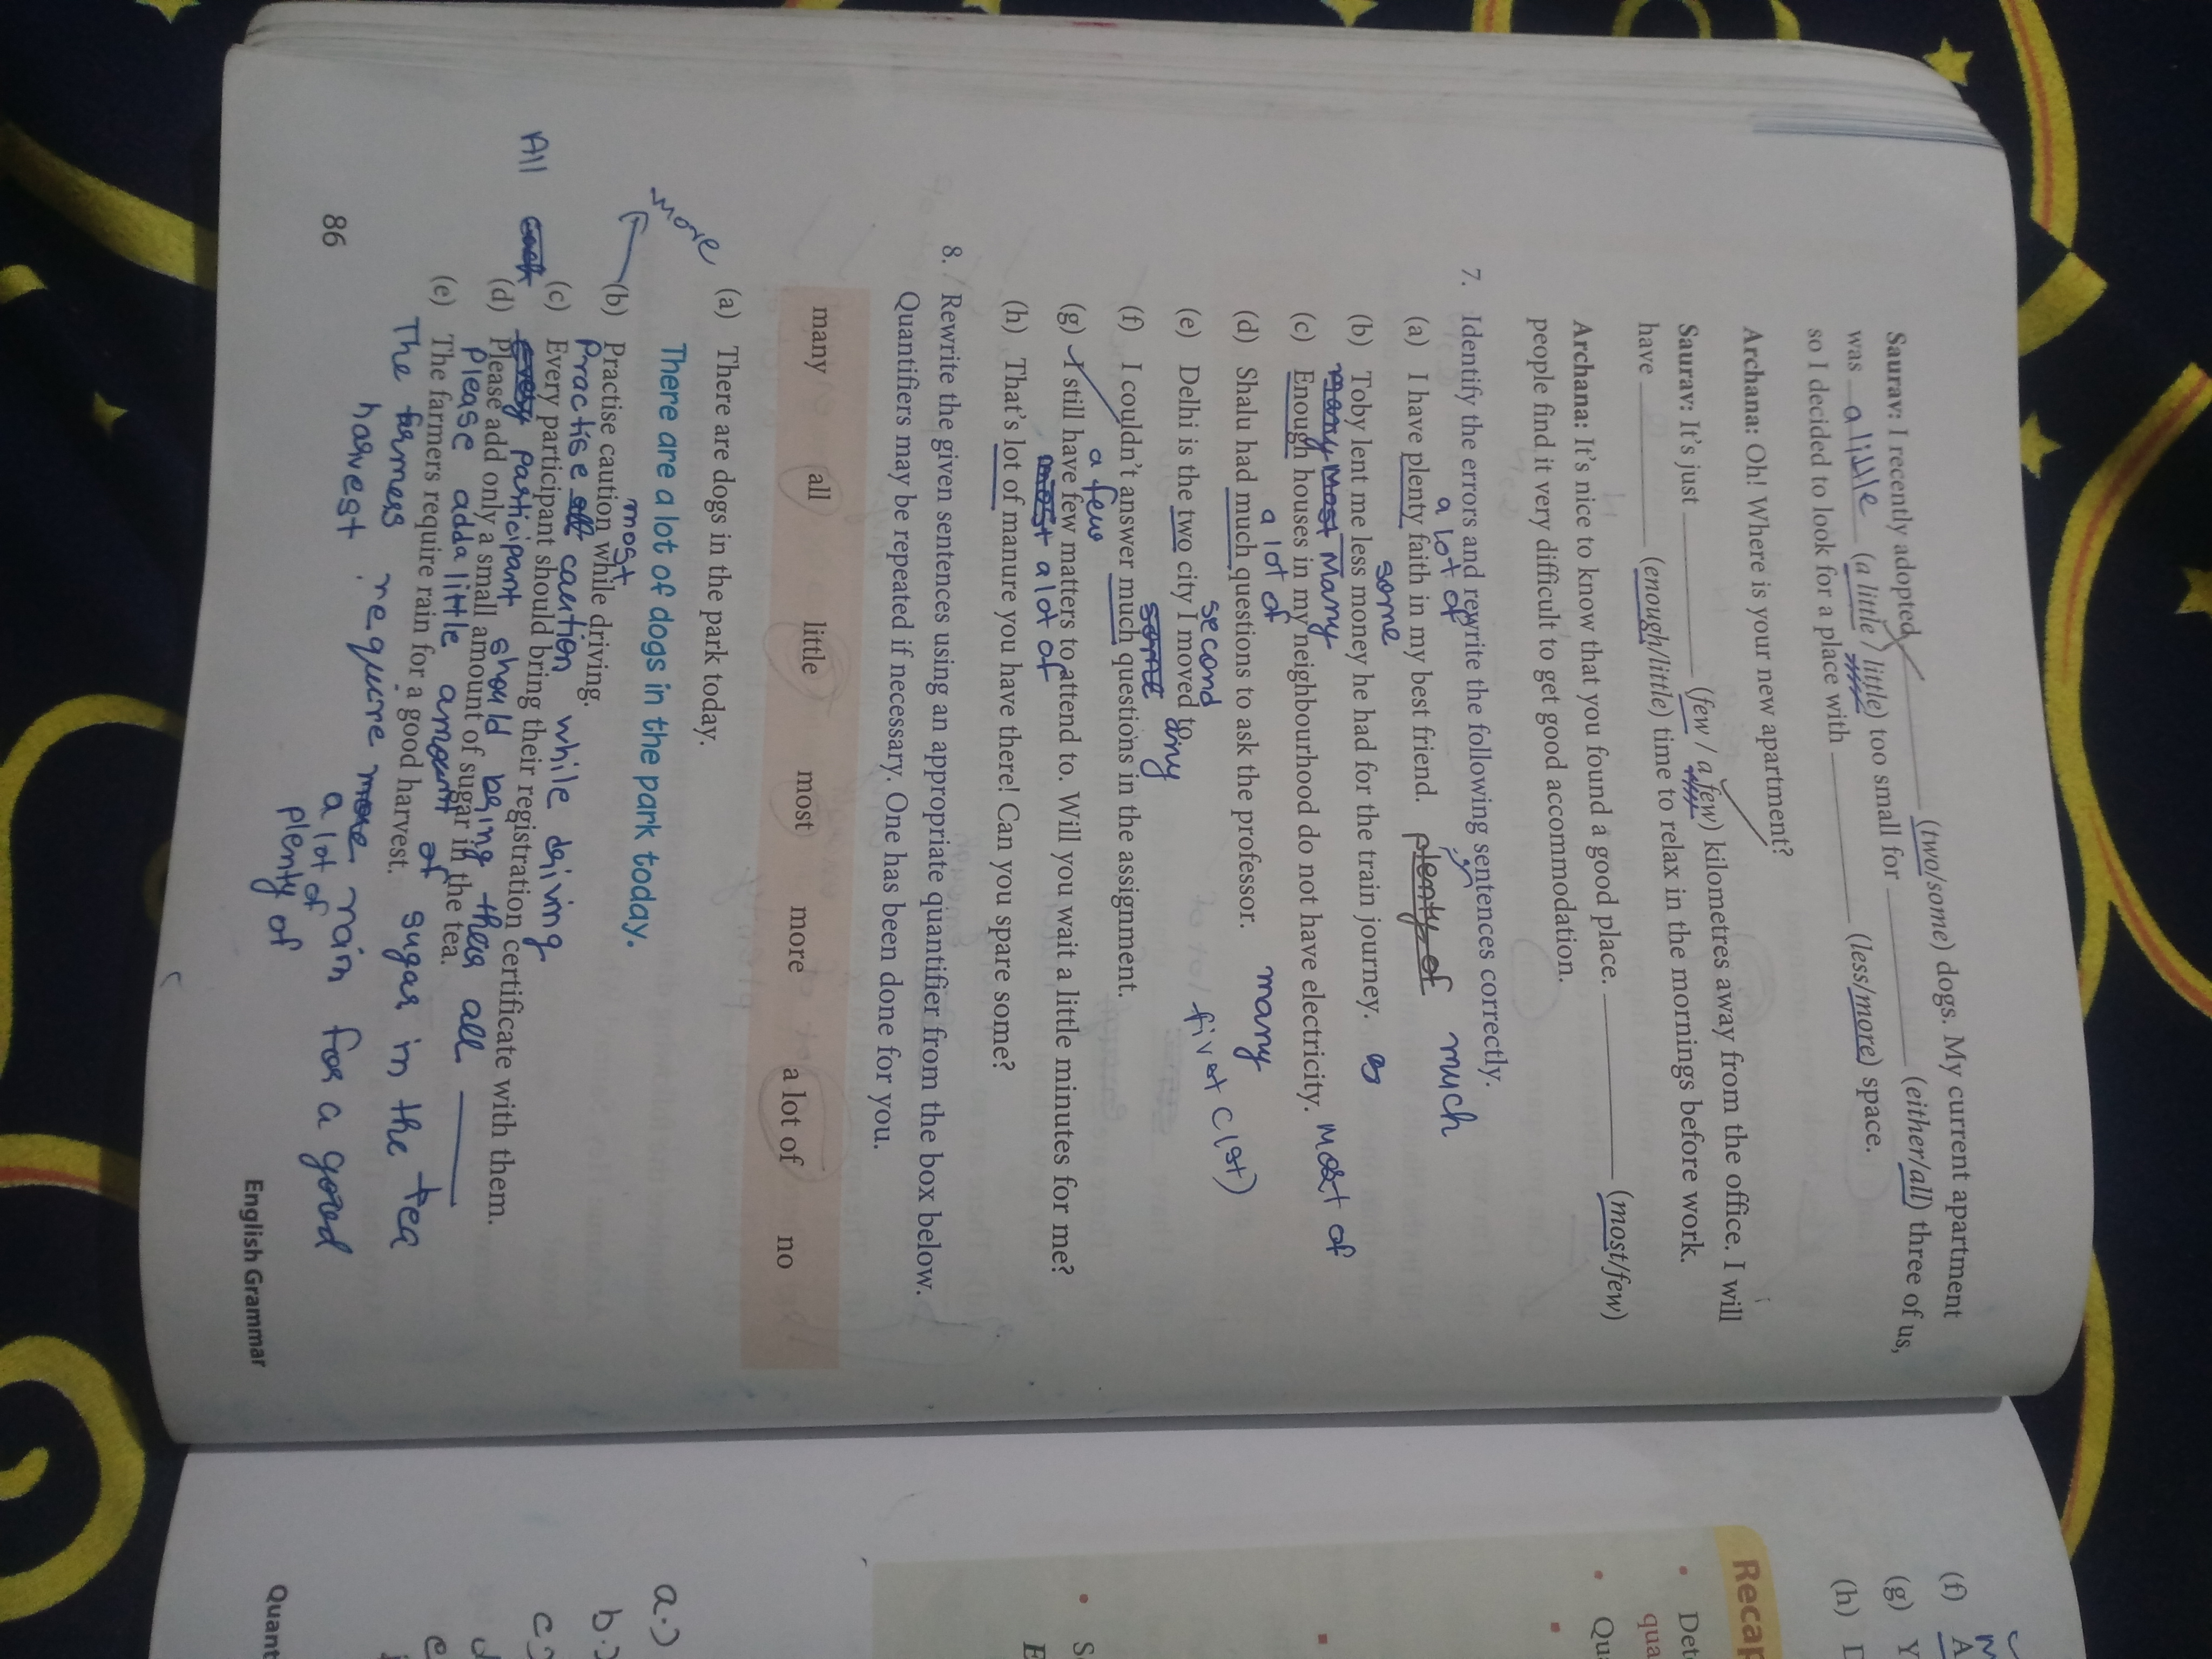 Saurav: I recently adopted ________ (two/some) dogs. My current apartment
was a little (a little / little) too small for ________ (either/all) three of us,
so I decided to look for a place with ________ (less/more) space.
Archana: Oh! Where is your new apartment?
Saurav: It's just ________ (few / a few) kilometres away from the office. I will
have ________ (enough/little) time to relax in the mornings before work.
Archana: It's nice to know that you found a good place. ________ (most/few)
people find it very difficult to get good accommodation.
7. Identify the errors and rewrite the following sentences correctly.
a lot of
(a) I have plenty faith in my best friend. plenty of much
some
(b) Toby lent me less money he had for the train journey.
many Most Many
(c) Enough houses in my neighbourhood do not have electricity. Most of
a lot of
(d) Shalu had much questions to ask the professor. many
second
(e) Delhi is the two city I moved to. first (1st)
some any
(f) I couldn't answer much questions in the assignment.
a few
(g) I still have few matters to attend to. Will you wait a little minutes for me?
most a lot of
(h) That's lot of manure you have there! Can you spare some?
8. Rewrite the given sentences using an appropriate quantifier from the box below.
Quantifiers may be repeated if necessary. One has been done for you.
many all little most more a lot of no
(a) There are dogs in the park today.
There are a lot of dogs in the park today.
more
most
(b) Practise caution while driving.
Practise all caution while driving
(c) Every participant should bring their registration certificate with them.
All each every participant should bring their all ____
(d) Please add only a small amount of sugar in the tea.
Please add a little amount of sugar in the tea
(e) The farmers require rain for a good harvest.
The farmers require more rain for a good
harvest
a lot of
plenty of
86
English Grammar
(f) A
(g) Y
(h) D
Recap
Dete
qua
Qua
E
a.)
b.)
c)
d
e
Quant